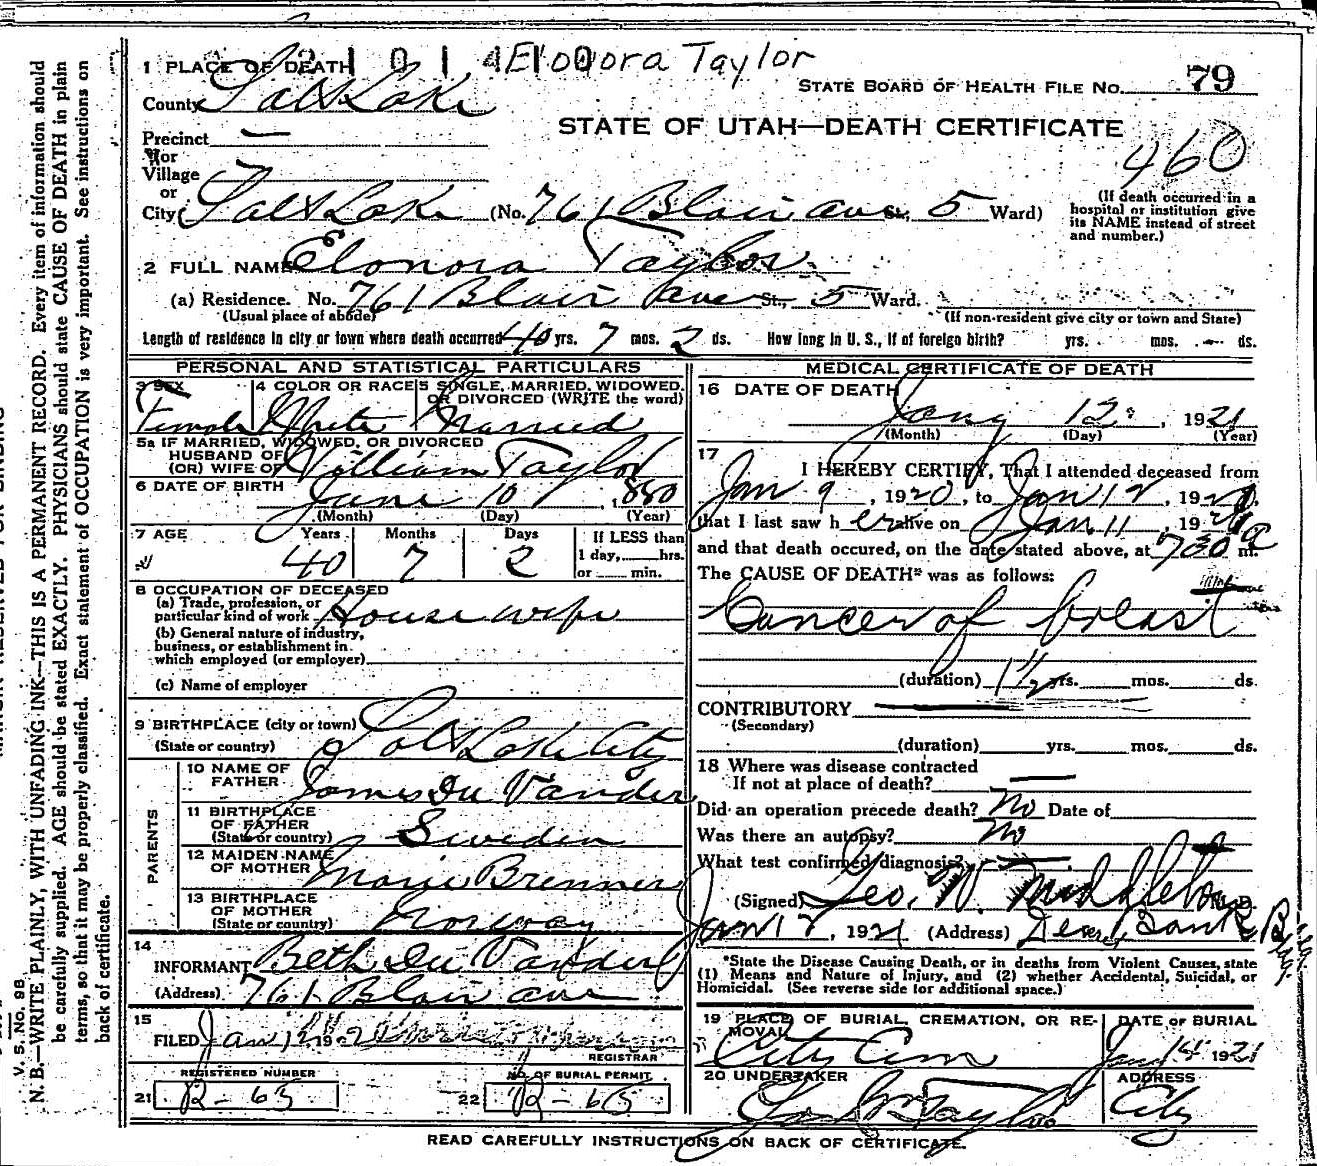 2 1 0 1 4 1 0 Elonora Taylor
1 PLACE OF DEATH
STATE BOARD OF HEALTH FILE No. 79
County Salt Lake
STATE OF UTAH—DEATH CERTIFICATE
Precinct —
460
or
Village
or
City Salt Lake (No. 761 Blair ave St., 5 Ward)
(If death occurred in a hospital or institution give its NAME instead of street and number.)
2 FULL NAME Elonora Taylor
(a) Residence. No. 761 Blair ave St., 5 Ward.
(Usual place of abode)
(If non-resident give city or town and State)
Length of residence in city or town where death occurred 40 yrs. 7 mos. 2 ds. How long in U. S., if of foreign birth? yrs. mos. ds.
PERSONAL AND STATISTICAL PARTICULARS
3 SEX
Female
4 COLOR OR RACE
White
5 SINGLE, MARRIED, WIDOWED, OR DIVORCED (WRITE the word)
Married
5a IF MARRIED, WIDOWED, OR DIVORCED
HUSBAND OF
(OR) WIFE OF William Taylor
6 DATE OF BIRTH June 10, 1880
(Month) (Day) (Year)
7 AGE Years Months Days
40 7 2
If LESS than
1 day, hrs.
or min.
8 OCCUPATION OF DECEASED
(a) Trade, profession, or
particular kind of work Housewife
(b) General nature of industry,
business, or establishment in
which employed (or employer)
(c) Name of employer
9 BIRTHPLACE (city or town)
(State or country) Salt Lake City
PARENTS
10 NAME OF
FATHER James Du Vander
11 BIRTHPLACE
OF FATHER
(State or country) Sweden
12 MAIDEN NAME
OF MOTHER Marie Brenner
13 BIRTHPLACE
OF MOTHER
(State or country) Norway
14
INFORMANT Beth Du Vander
(Address) 761 Blair ave
15
FILED Jan 12 192
REGISTRAR
REGISTERED NUMBER
21 R-65
NO. OF BURIAL PERMIT
22 R-65
MEDICAL CERTIFICATE OF DEATH
16 DATE OF DEATH
Jany 12, 1921
(Month) (Day) (Year)
17
I HEREBY CERTIFY, That I attended deceased from
Jan 9, 1920, to Jan 12, 192
that I last saw her alive on Jan. 11, 192
and that death occured, on the date stated above, at 730 a m.
The CAUSE OF DEATH* was as follows:
Cancer of breast
(duration) 1 1/2 yrs. mos. ds.
CONTRIBUTORY
(Secondary)
(duration) yrs. mos. ds.
18 Where was disease contracted
If not at place of death? —
Did an operation precede death? No Date of
Was there an autopsy? No
What test confirmed diagnosis? —
(Signed) Geo. W. Middleton M.D.
Jan 12, 1921 (Address) Deseret Bank Bldg
*State the Disease Causing Death, or in deaths from Violent Causes, state
(1) Means and Nature of Injury, and (2) whether Accidental, Suicidal, or
Homicidal. (See reverse side for additional space.)
19 PLACE OF BURIAL, CREMATION, OR REMOVAL
City Cem
DATE OF BURIAL
Jan 14 1921
20 UNDERTAKER
Taylor
ADDRESS
City
READ CAREFULLY INSTRUCTIONS ON BACK OF CERTIFICATE.
V. S. No. 98
N. B.—WRITE PLAINLY, WITH UNFADING INK—THIS IS A PERMANENT RECORD. Every item of information should
be carefully supplied. AGE should be stated EXACTLY. PHYSICIANS should state CAUSE OF DEATH in plain
terms, so that it may be properly classified. Exact statement of OCCUPATION is very important. See instructions on
back of certificate.